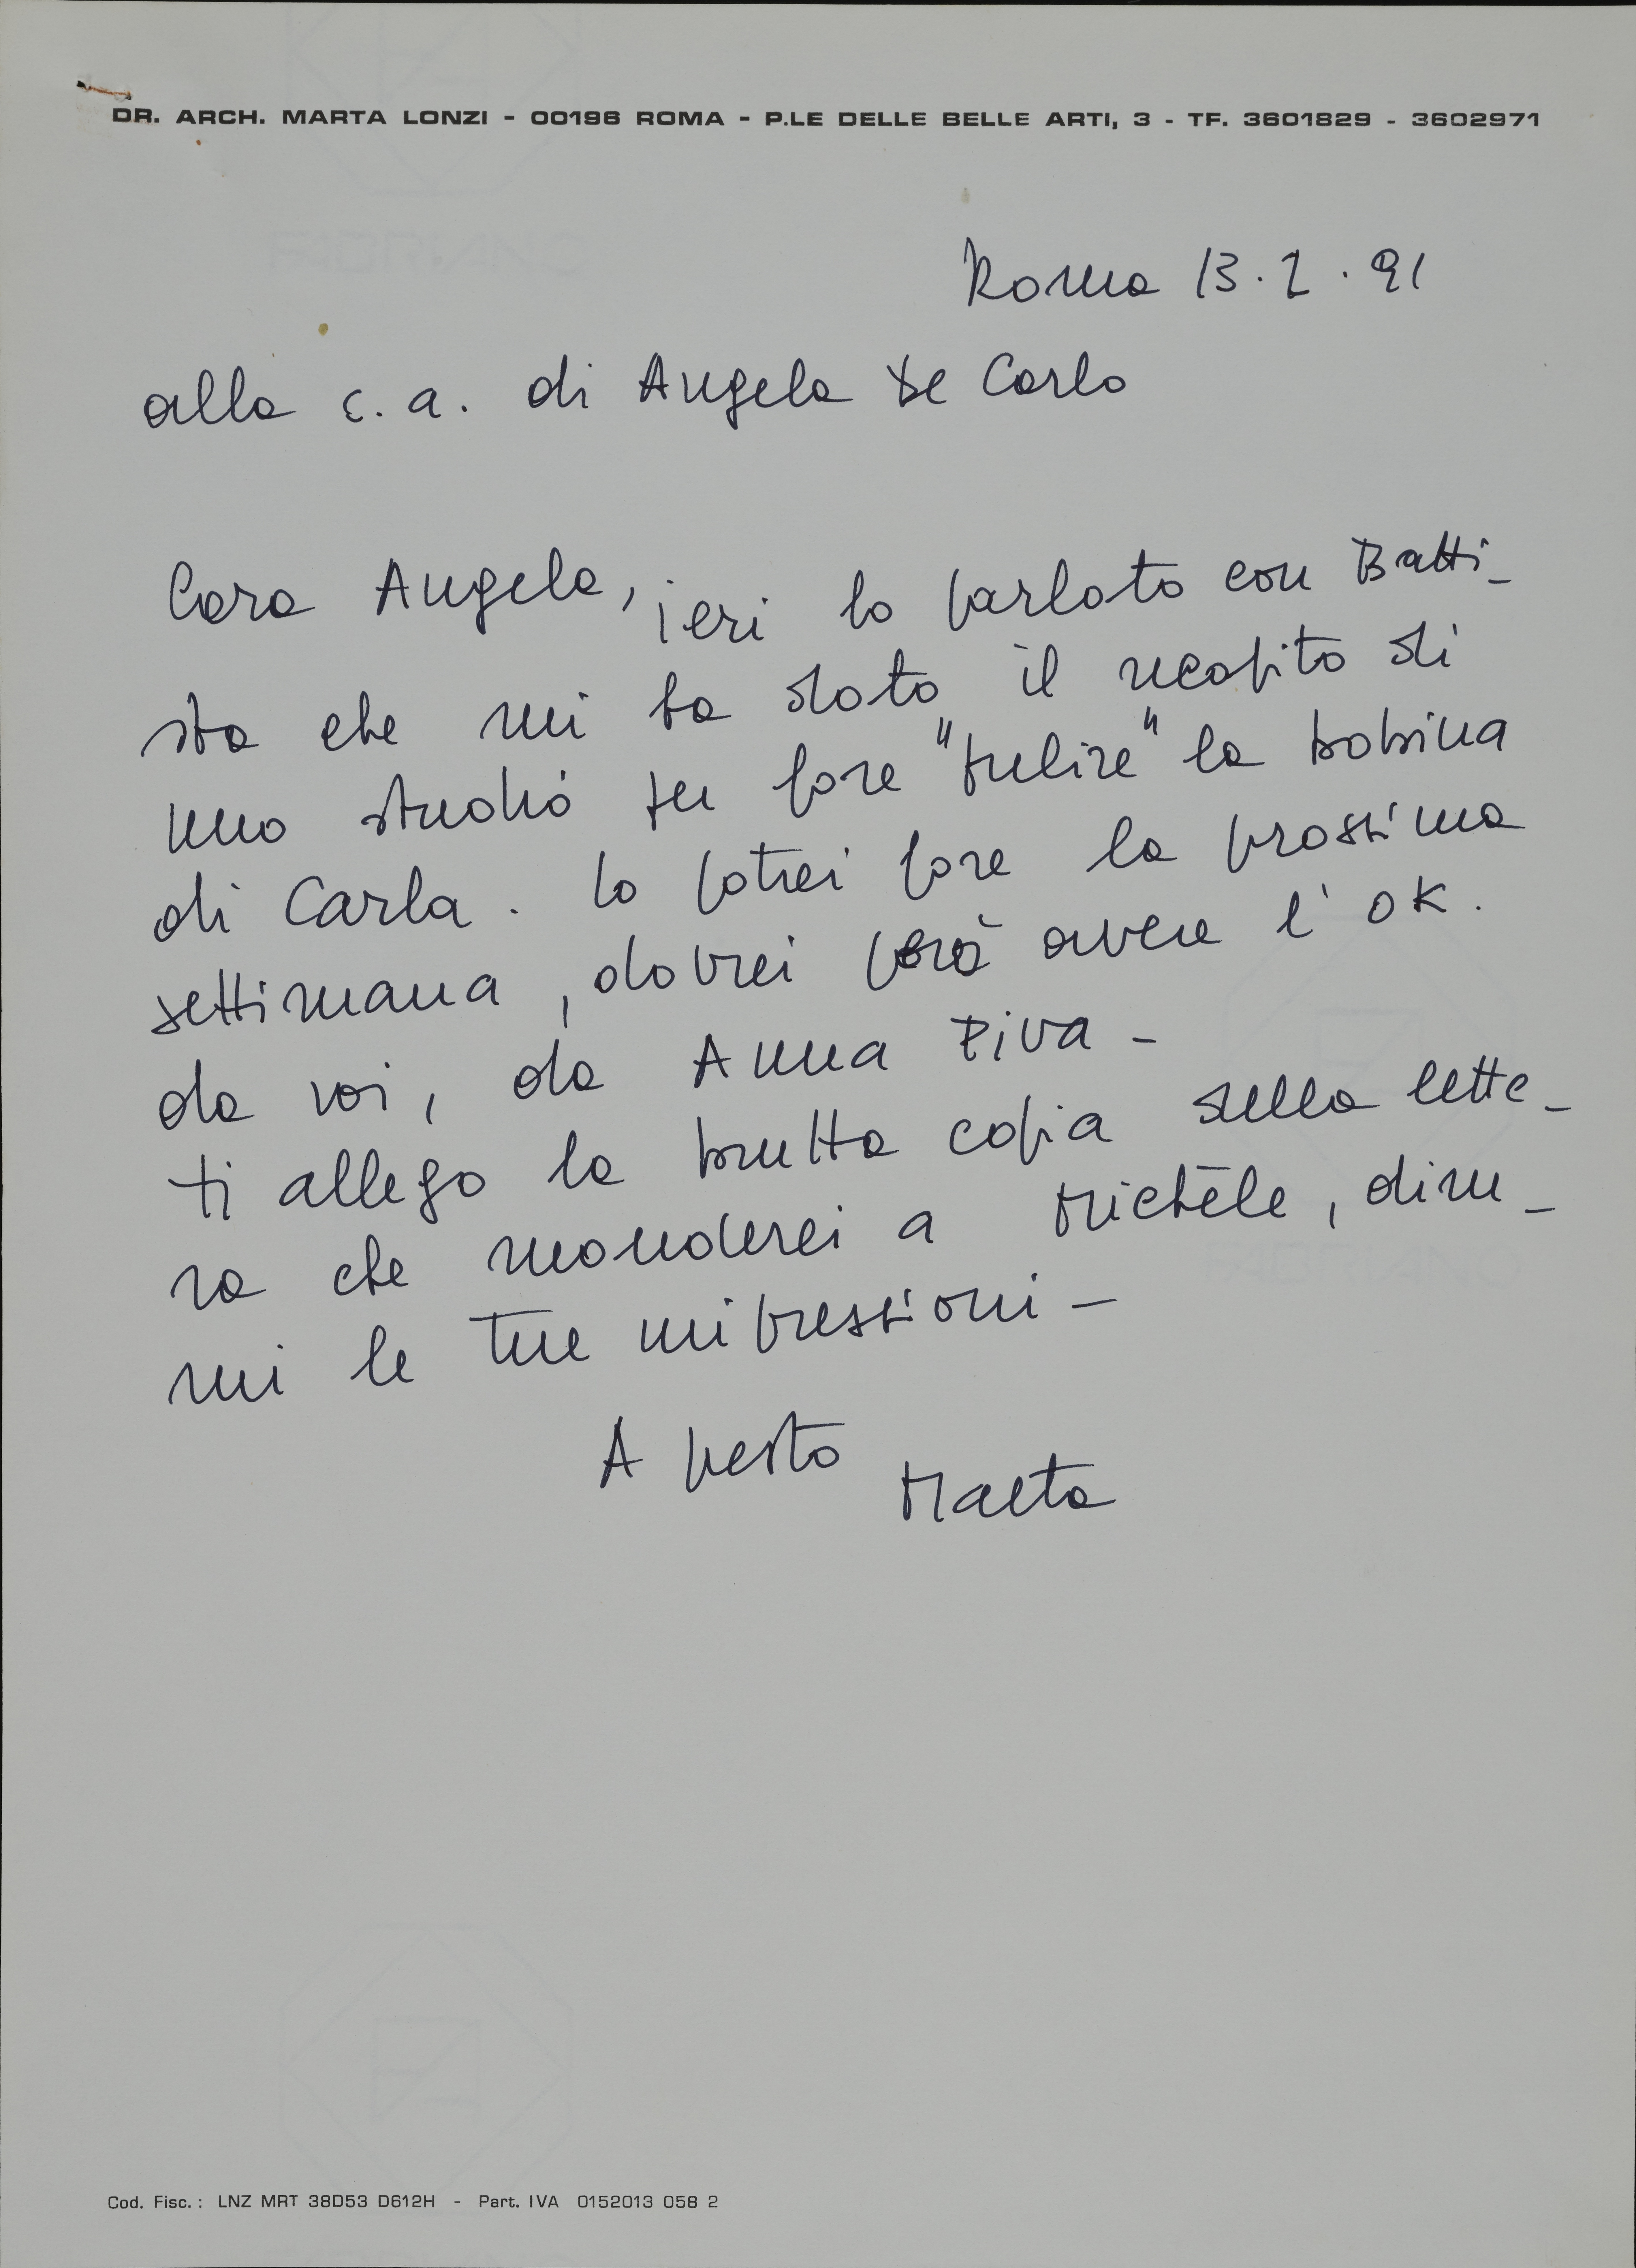 DR. ARCH. MARTA LONZI - 00196 ROMA - P.LE DELLE BELLE ARTI, 3 - TF. 3601829 - 3602971
Roma 13.2.91
alla c.a. di Angela De Carlo
Cara Angela, ieri ho parlato con Batti-
sta che mi ha dato il recapito di
uno studio per fare "pulire" la bobina
di Carla. Lo potrei fare la prossima
settimana, dovrei però avere l'OK.
da voi, da Anna Piva -
ti allego la brutta copia della lette-
ra che manderei a Michèle, dim-
mi le tue impressioni -
A presto
Marta
Cod. Fisc.: LNZ MRT 38D53 D612H - Part. IVA 0152013 058 2